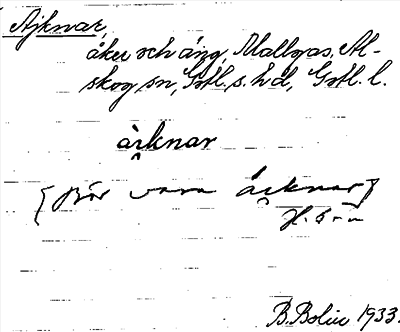 Ajknar,
åker och äng, Mallgas, Al-
skog sn, Gotl. s. hd, Gotl. l.
àịknar
{Bör vara áịknar}
B. Bolin 1933.